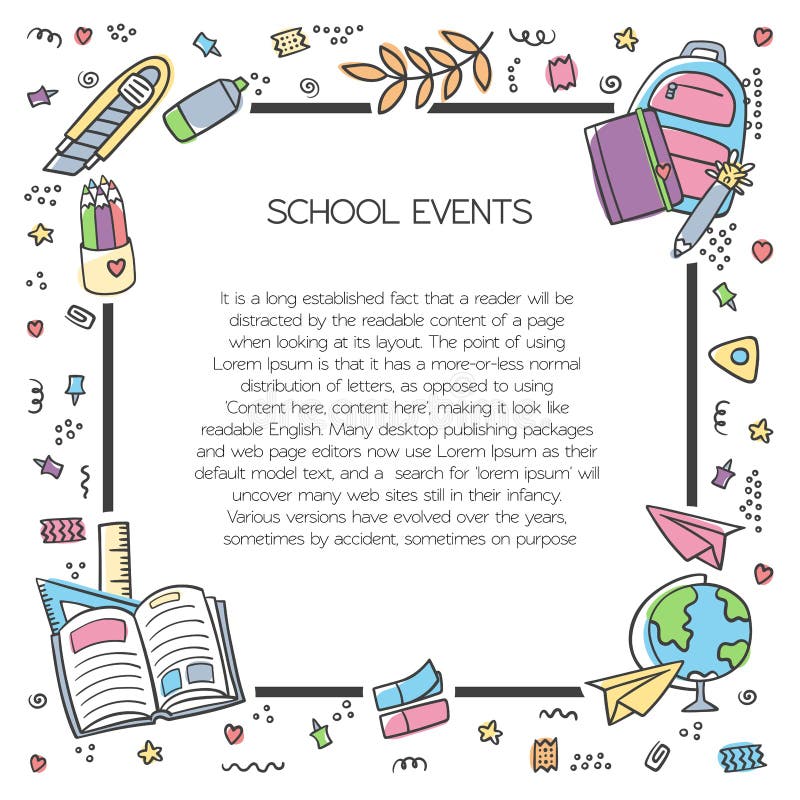 SCHOOL EVENTS
It is a long established fact that a reader will be
distracted by the readable content of a page
when looking at its layout. The point of using
Lorem Ipsum is that it has a more-or-less normal
distribution of letters, as opposed to using
'Content here, content here', making it look like
readable English. Many desktop publishing packages
and web page editors now use Lorem Ipsum as their default
model text, and a search for 'lorem ipsum' will
uncover many web sites still in their infancy.
Various versions have evolved over the years,
sometimes by accident, sometimes on purpose